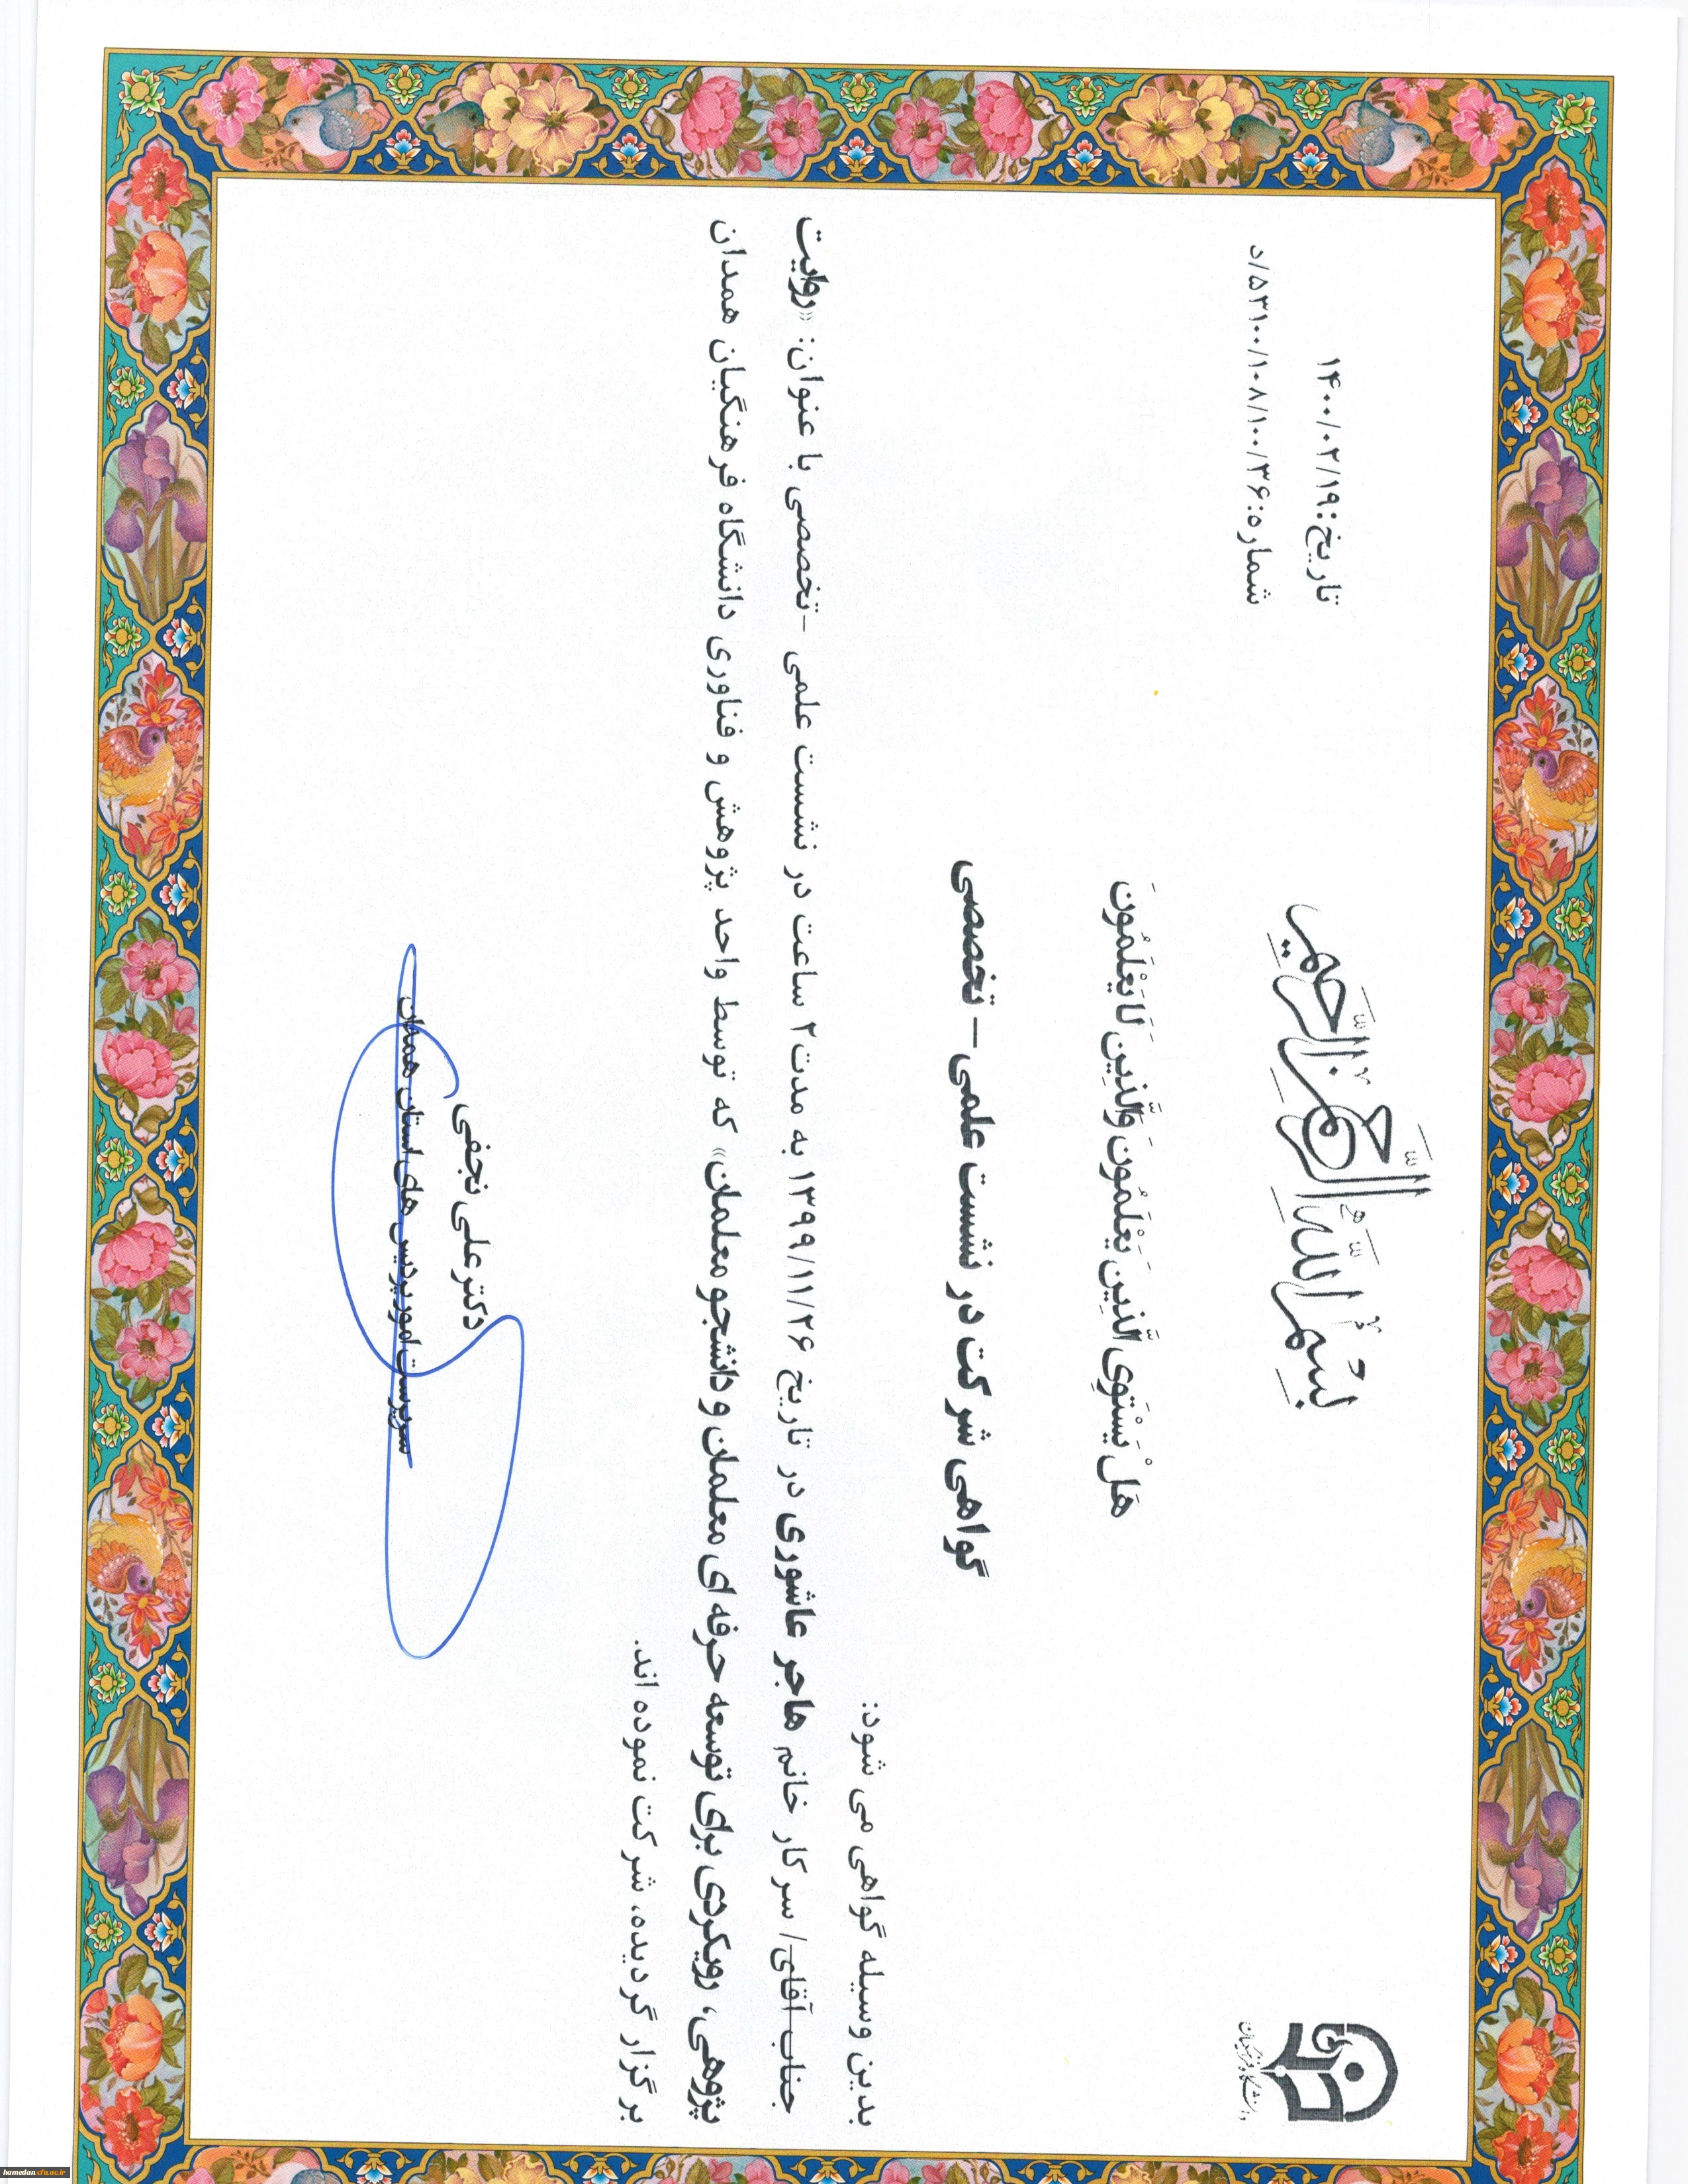 بِسْمِ اللَّهِ الرَّحْمَٰنِ الرَّحِيمِ
دانشگاه فرهنگیان
تاریخ:۱۴۰۰/۰۲/۱۹
شماره:۵۳۱۰۰/۱۰۸/۱۰۰/۳۶/د
هَلْ يَسْتَوِي الَّذِينَ يَعْلَمُونَ وَالَّذِينَ لَا يَعْلَمُونَ
گواهی شرکت در نشست علمی – تخصصی
بدین وسیله گواهی می شود:
جناب آقای/ سرکار خانم هاجر عاشوری در تاریخ ۱۳۹۹/۱۱/۲۶ به مدت ۲ ساعت در نشست علمی -تخصصی با عنوان: «روایت
پژوهی، رویکردی برای توسعه حرفه ای معلمان و دانشجو معلمان» که توسط واحد پژوهش و فناوری دانشگاه فرهنگیان همدان
برگزار گردیده، شرکت نموده اند.
دکتر علی نجفی
سرپرست امور پردیس های استان همدان
hamedan.cfu.ac.ir